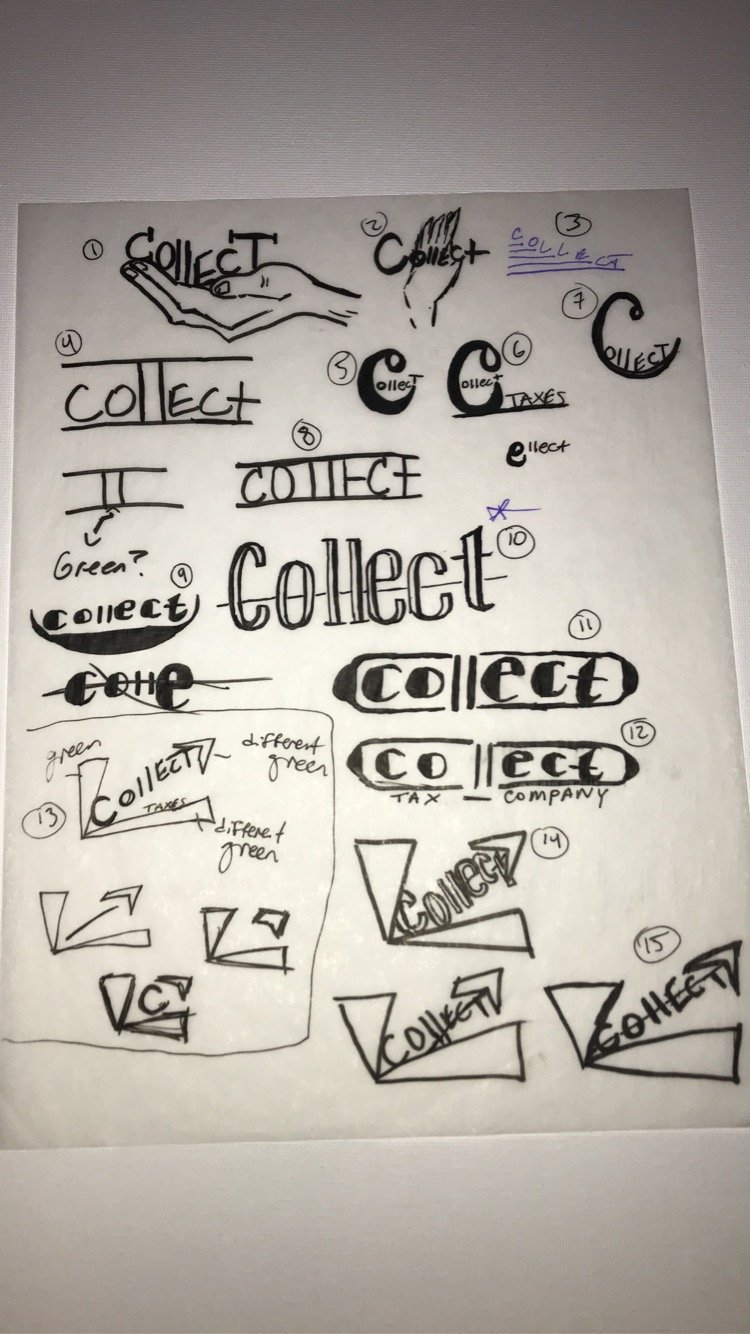 1 CollecT
2 Collect
3 COLLECT
7 Collect
4 Collect
5 Collect
6 Collect
TAXES
ellect
8 COLLECT
Green?
10 Collect
9 collect
colle
11 collect
12 collect
TAX — COMPANY
13 green
different
green
Collect
TAXES
different
green
14 Collect
C
Collect
15 Collect